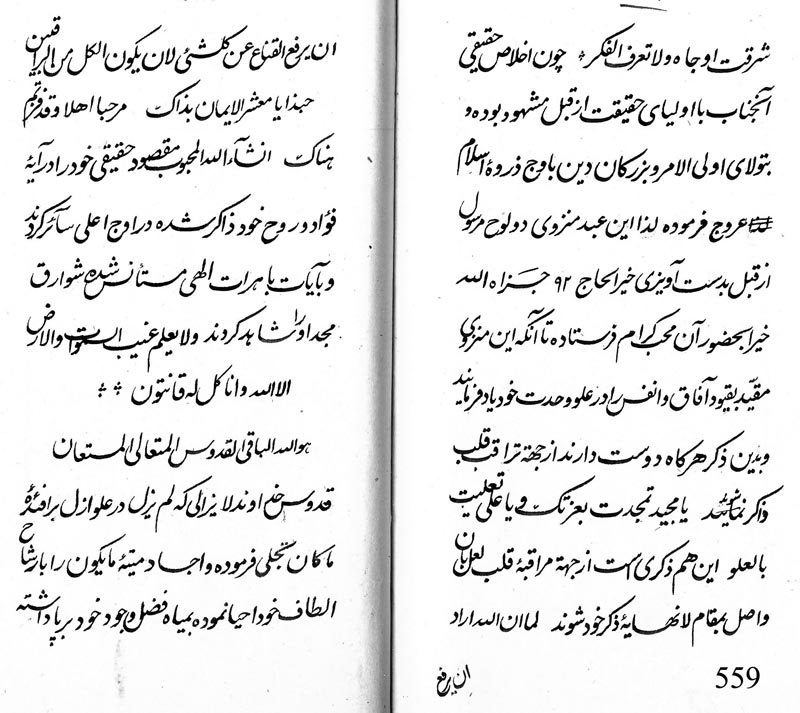 شرقت او جاه ولا تعرف الفکر ؞ چون اخلاص حقیقی
آنجناب با اولیای حقیقت از قبل مشهود بوده و
بتولای اولی الامر و بزرکان دین باوج ذروهٔ اسلام
عروج فرموده لذا این عبد منزوی دو لوح مرسول
از قبل بدست آویزی خیر الحاج ۹۲ جزاه الله
خیرا بحضور آن محب کرام فرستاده تا آنکه این منزوی
مقید بقیود آفاق و انفس را در علو وحدت خود یاد فرمایند
و بدین ذکر هرکاه دوست دارند از جهة تراقب قلب
ذاکر شوند یا مجید تمجدت بعزتک و یا علی تعلیت
بالعلو این هم ذکری است از جهة مراقبهٔ قلب لعل بآن
واصل بمقام لانهایهٔ ذکر خود شوند لما ان الله اراد
ان یرفع
559
ان یرفع القناع عن کلشئ لان یکون الکل من الراقین
حبذا یا معشر الایمان بذاک مرحبا اهلا وقد فزتم
هناک انشآء الله المحبوب مقصود حقیقی خود را در آیهٔ
فؤاد و روح خود ذاکر شده در اوج اعلی سآئر کردند
و بآیات باهرات الهی مستأنس شده شوارق
مجد او را شاهد کردند ولا یعلم غیب السموات والارض
الا الله وانا کل له قانتون ؞ ؞
هو الله الباقی القدوس المتعالی المستعان
قدوس خداوند لایزالی که لم یزل در علو ازل بر افئدهٔ
ما کان تجلی فرموده و اجساد میتهٔ ما یکون را بارشاح
الطاف خود احیا نموده بمیاه فضل وجود خود برپا داشته